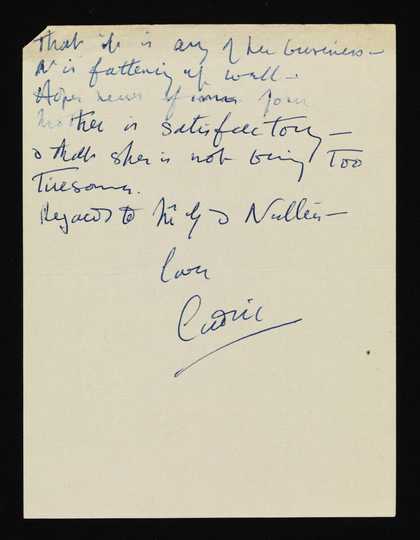 that it is any of her business –
& is fattening up well –
Hope news of your
mother is satisfactory –
& that she is not being too
tiresome.
Regards to &
Love
Cedric